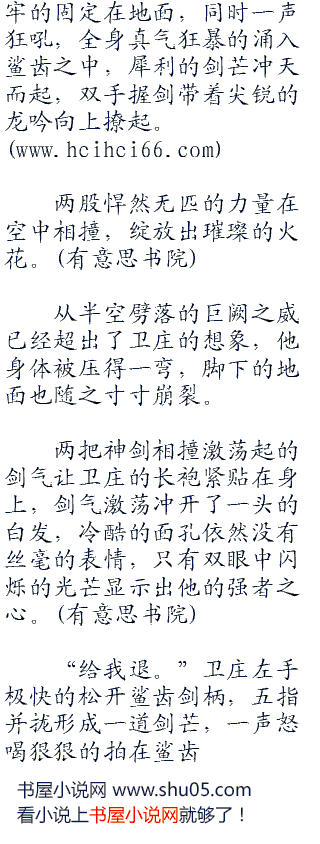 牢的固定在地面，同时一声
狂吼，全身真气狂暴的涌入
鲨齿之中，犀利的剑芒冲天
而起，双手握剑带着尖锐的
龙吟向上撩起。
(www.hcihci66.com)
两股悍然无匹的力量在
空中相撞，绽放出璀璨的火
花。(有意思书院)
从半空劈落的巨阙之威
已经超出了卫庄的想象，他
身体被压得一弯，脚下的地
面也随之寸寸崩裂。
两把神剑相撞激荡起的
剑气让卫庄的长袍紧贴在身
上，剑气激荡冲开了一头的
白发，冷酷的面孔依然没有
丝毫的表情，只有双眼中闪
烁的光芒显示出他的强者之
心。(有意思书院)
“给我退。”卫庄左手
极快的松开鲨齿剑柄，五指
并拢形成一道剑芒，一声怒
喝狠狠的拍在鲨齿
书屋小说网 www.shu05.com
看小说上书屋小说网就够了！